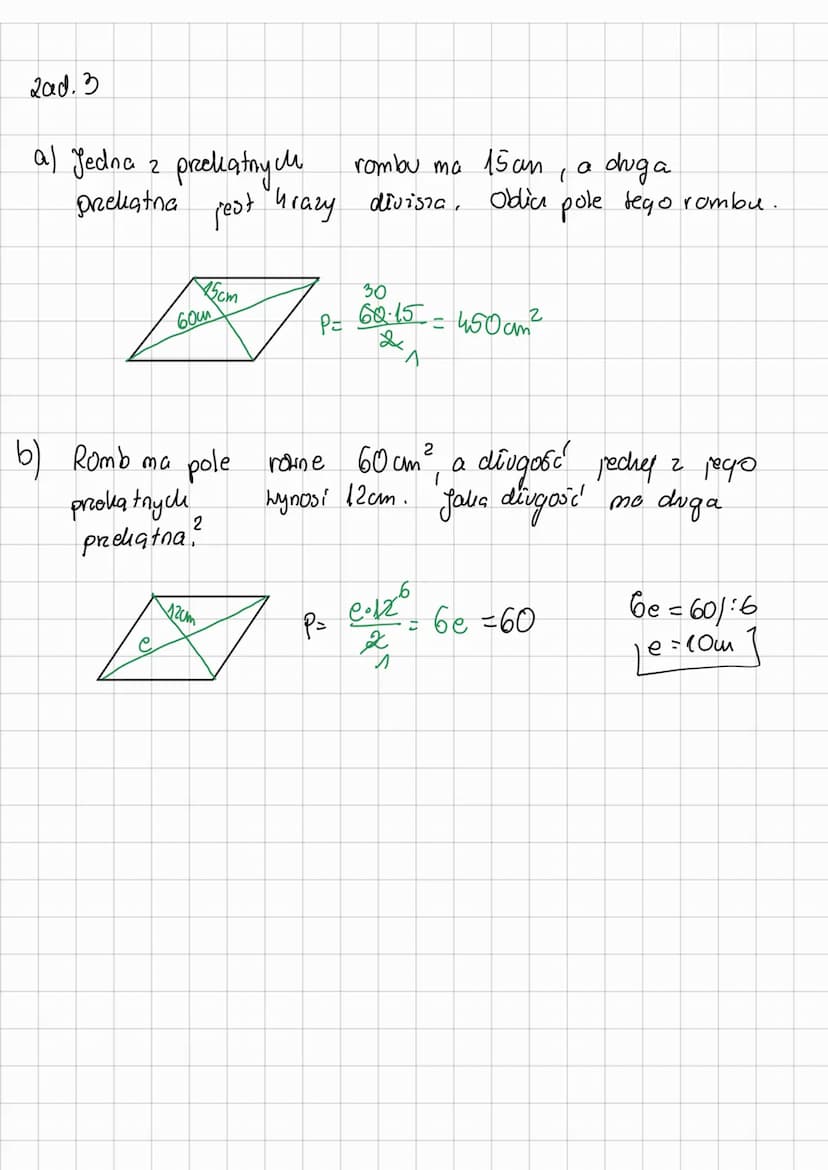 zad. 3
a) Jedna z przekątnych rombu ma 15cm, a druga
przekątna jest 4razy dłuższa. Oblicz pole tego rombu.
15cm
60cm
P= 60·15 / 2 = 450cm²
30
1
b) Romb ma pole równe 60cm², a długość jednej z jego
przekątnych wynosi 12cm. Jaką długość ma druga
przekątna?
12cm
e
P= e·12 / 2 = 6e =60
6
1
6e = 60/:6
e = 10cm